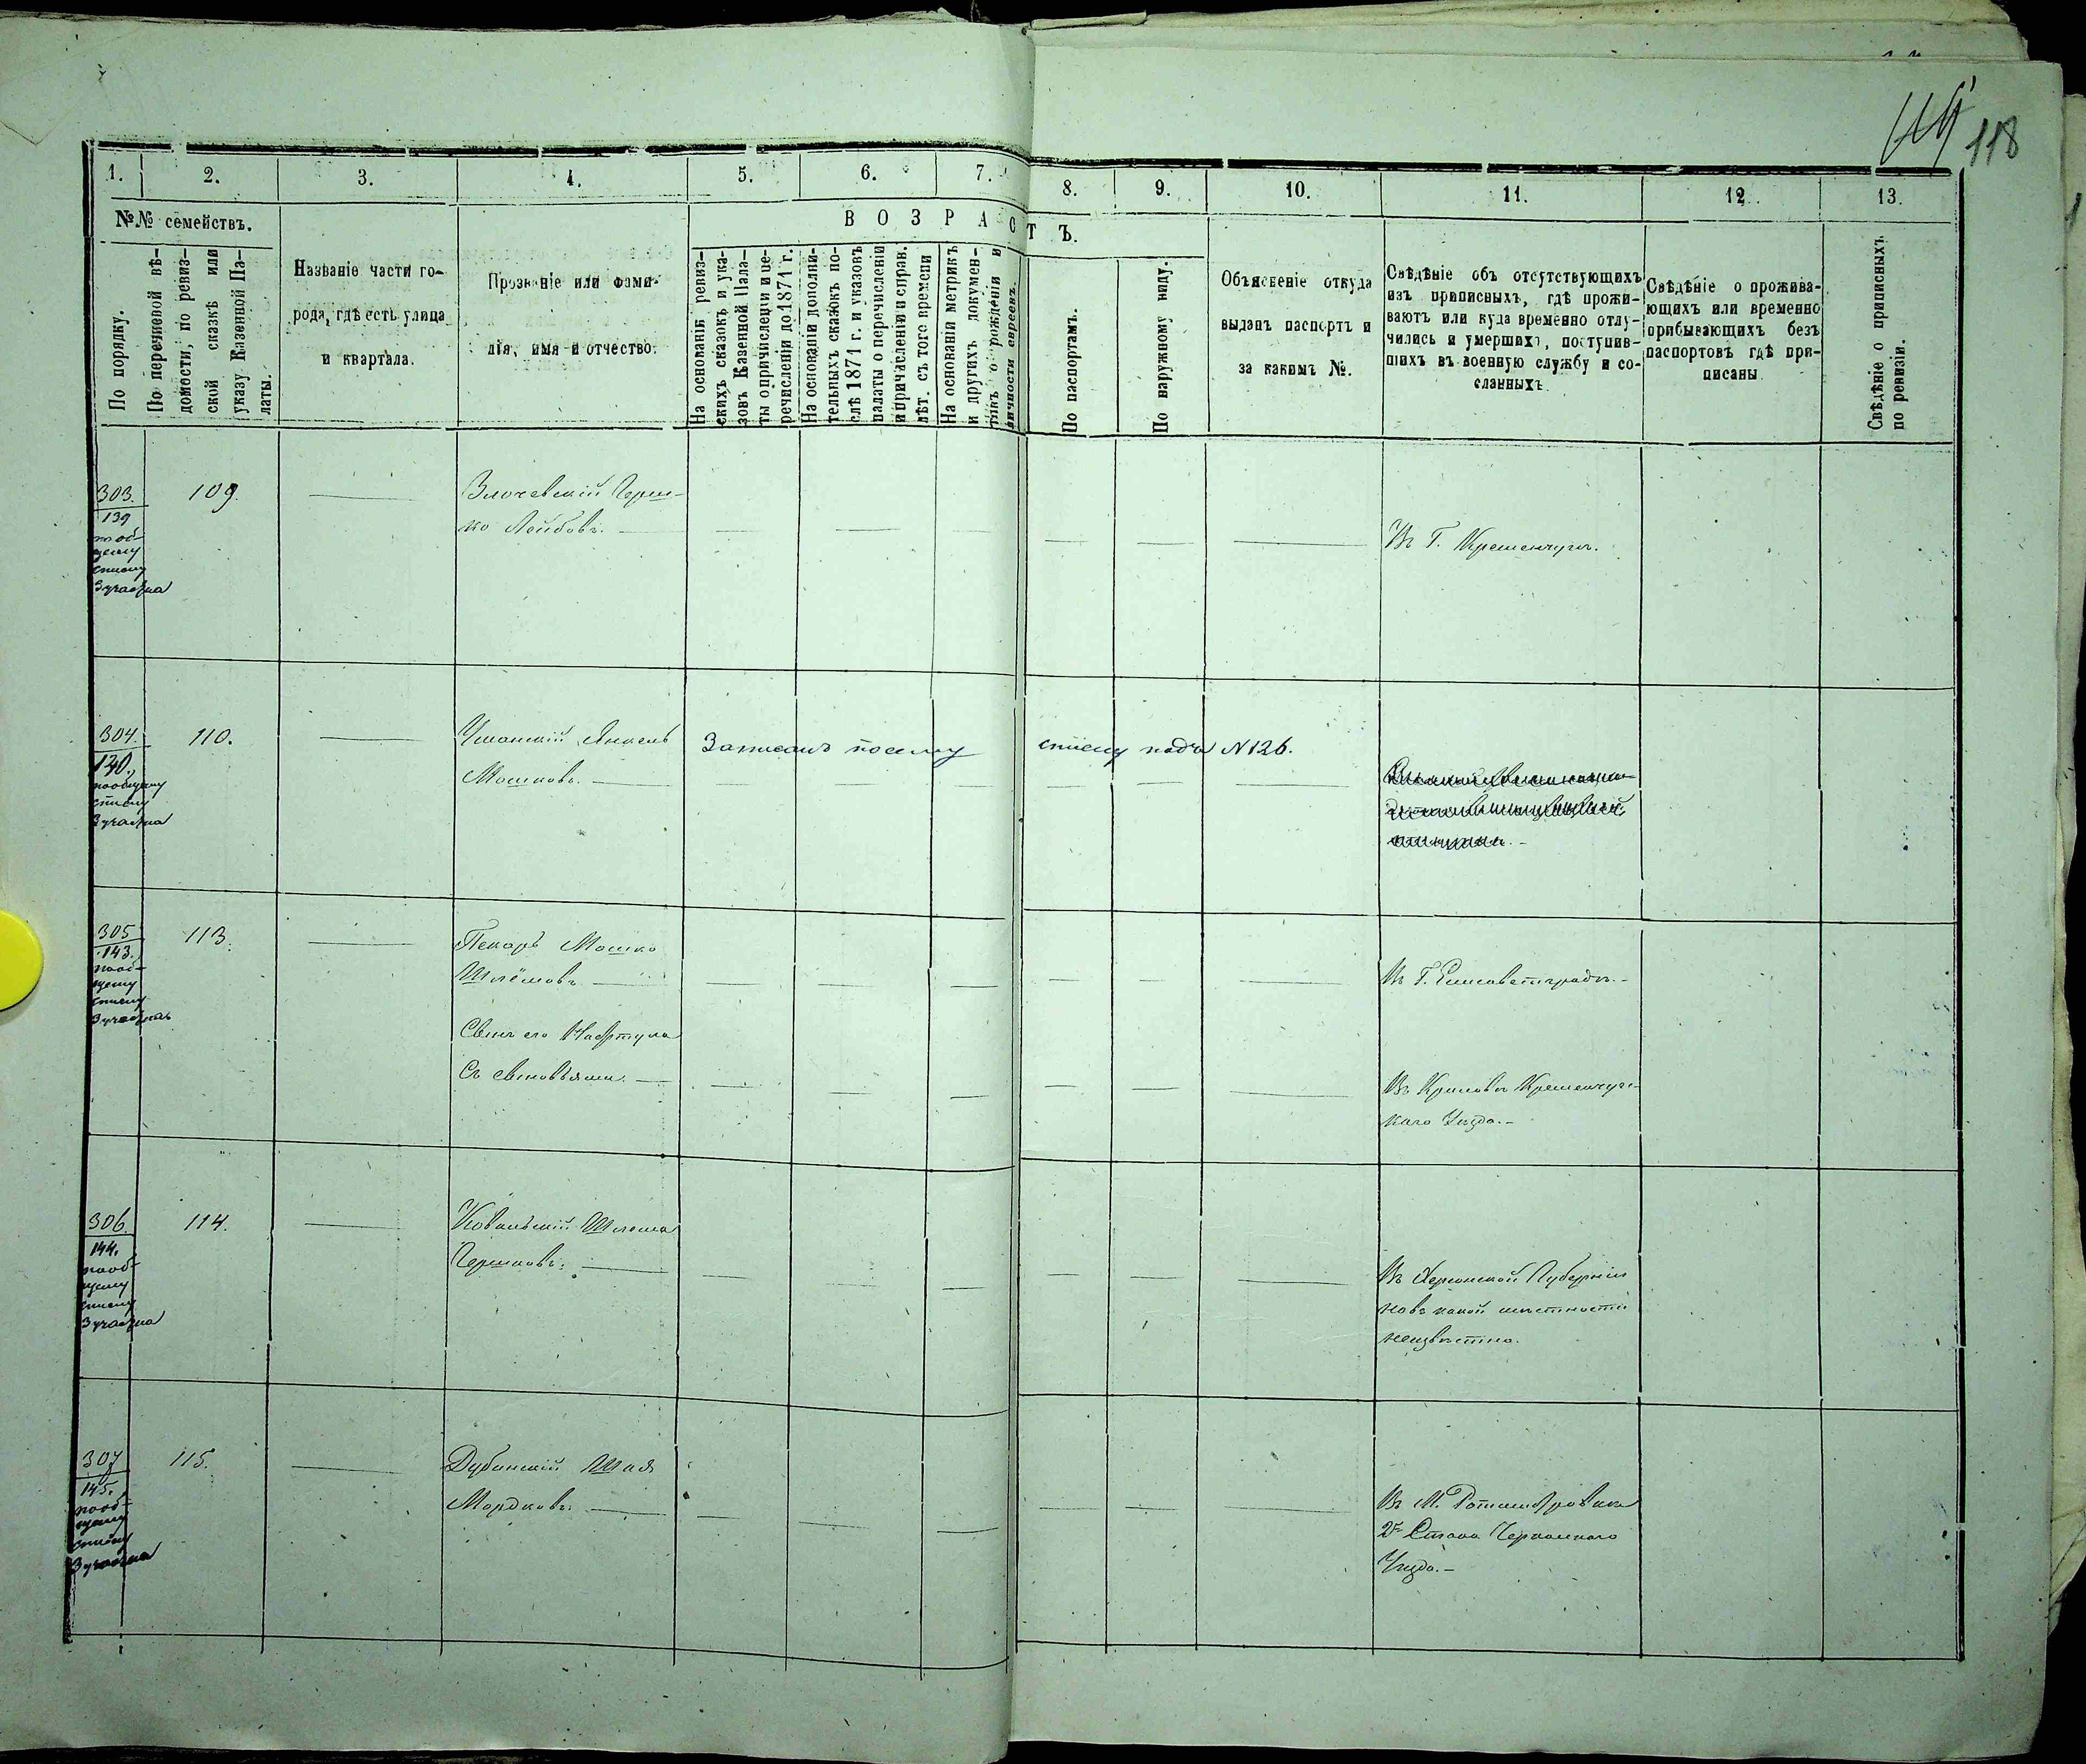 118
1. 2. 3. 4. 5. 6. 7. 8. 9. 10. 11. 12. 13.
№№ семействъ.
По порядку.
По перечневой вѣ-
домости, по ревиз-
ской сказкѣ или
указу Казенной Па-
латы.
Названіе части го-
рода, гдѣ есть улица
и квартала.
Прозваніе или фами-
лія, имя и отчество.
ВОЗРАСТЪ.
На основаніи ревиз-
скихъ сказокъ и ука-
зовъ Казенной Пала-
ты о причисленіи и пе-
речисленіи до 1871 г.
На основаніи дополни-
тельныхъ сказокъ по-
слѣ 1871 г. и указовъ
палаты о перечисленіи
и причисленіи и справ.
лѣт. съ того времени
На основаніи метрикъ
и другихъ докумен-
товъ о рожденіи и
личности евреевъ.
По паспортамъ.
По наружному виду.
Объясненіе откуда
выданъ паспортъ и
за какимъ №.
Свѣдѣніе объ отсутствующихъ
изъ приписныхъ, гдѣ прожи-
ваютъ или куда временно отлу-
чились и умершихъ, поступив-
шихъ въ военную службу и со-
сланныхъ.
Свѣдѣніе о прожива-
ющихъ или временно
прибывающихъ безъ
паспортовъ гдѣ при-
писаны.
Свѣдѣніе о приписныхъ
по ревизіи.
303.
139
по об-
щему
списку
3 участка
109.
Злочевскій Герш-
ко Лейбовъ.
Въ Г. Кременчугѣ.
304.
140.
по общему
списку
3 участка
110.
Уманскій Янкель
Мошковъ.
Записанъ по сему списку подъ № 126.
305
143.
по об-
щему
списку
3 участка
113.
Пекарь Мошко
Шлёмовъ
Въ Г. Елисаветградѣ.
Сынъ его Нафтула
Съ сыновьями.
Въ Крыловѣ Кременчугс-
каго Уѣзда.
306.
144.
по об-
щему
списку
3 участка
114.
Ковальскій Шлема
Гершковъ.
Въ Херсонской Губерніи
но въ какой мѣстности
неизвѣстно.
307
145.
по об-
щему
списку
3 участка
115.
Дубинскій Шая
Мордковъ.
Въ М. Ротмистровкѣ
2го Стана Черкасскаго
Уѣзда.